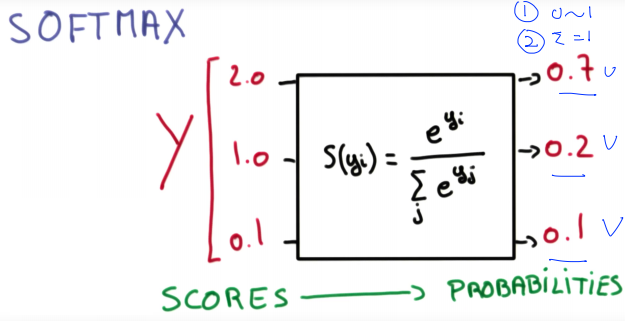 SOFTMAX
① 0~1
② Σ=1
Y
2.0
1.0
0.1
S(yᵢ) = e^yᵢ / Σⱼ e^yⱼ
→ 0.7 ∪
→ 0.2 ∨
→ 0.1 ∨
SCORES → PROBABILITIES